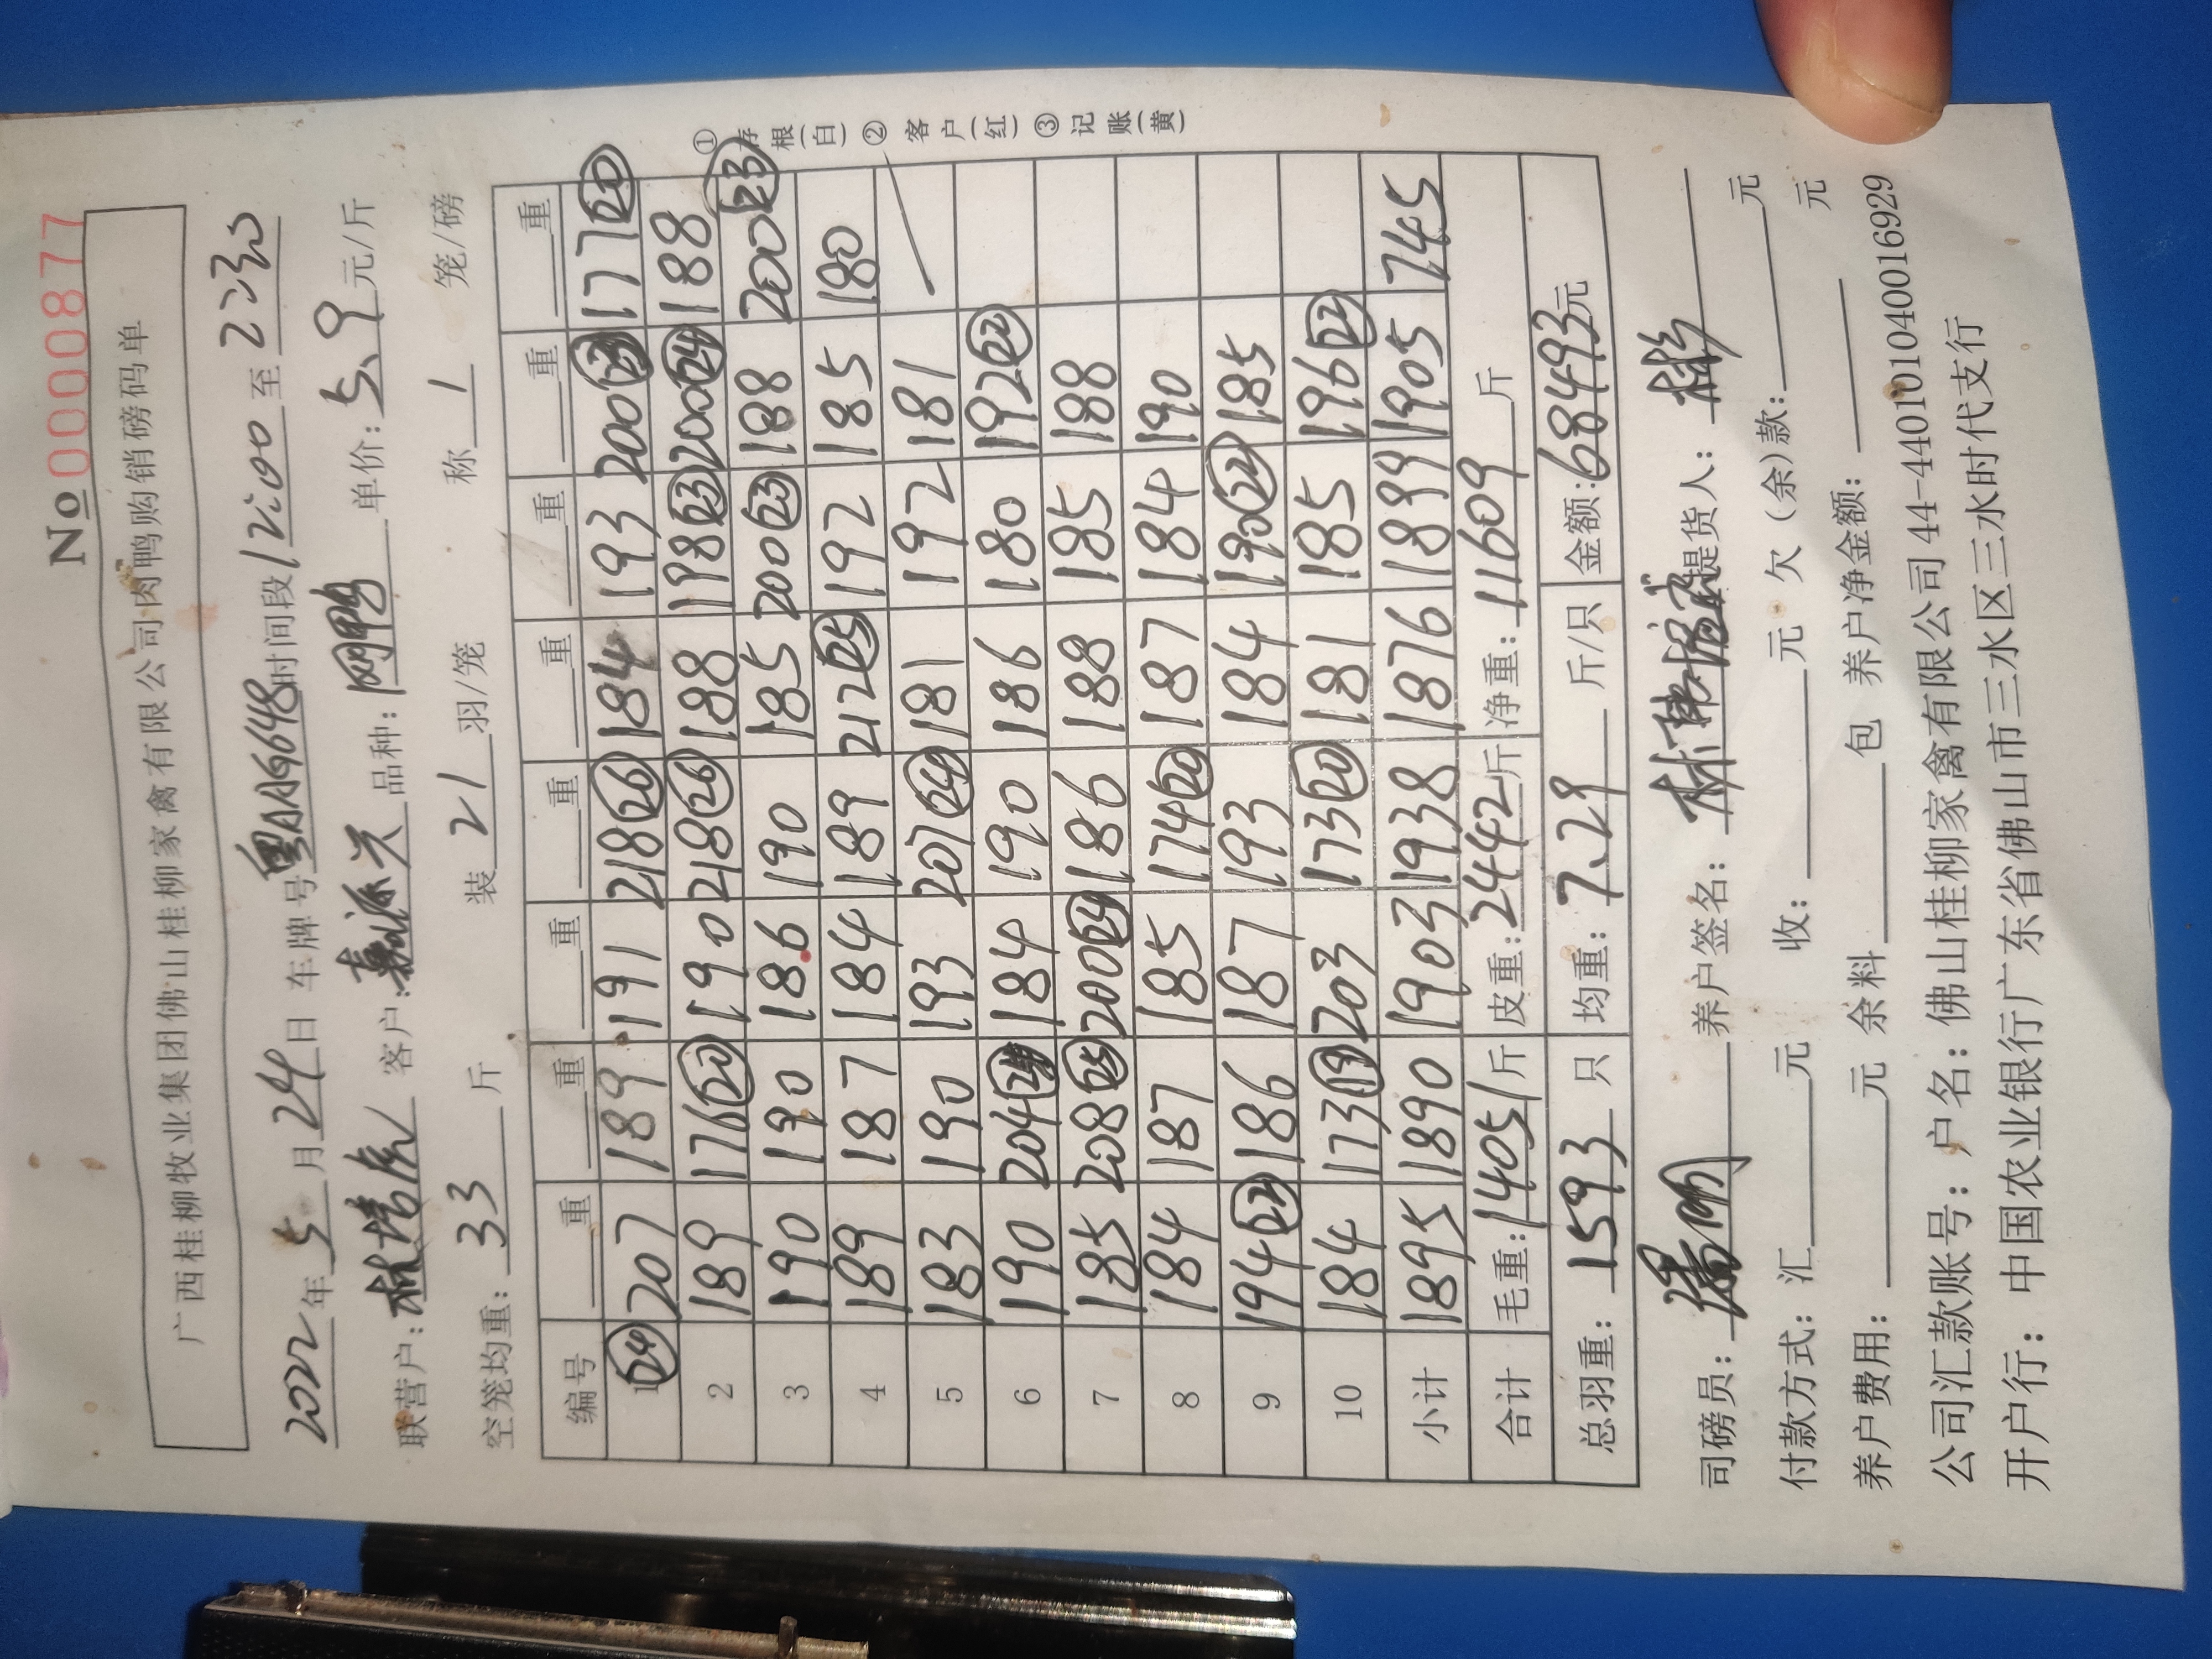 No 0000877
广西桂柳牧业集团佛山桂柳家禽有限公司肉鸭购销磅码单
2022年5月24日 车牌号粤AAG648时间段12:00至22:30
联营户: 客户: 品种: 单价:5.9元/斤
空笼均重:33斤 装21羽/笼 称1笼/磅
编号 重 重 重 重 重 重 重 重
1 (24) 207 189 191 218(26) 184 193 200(23) 177(20)
2 189 176(20) 190 218(26) 188 198(23) 200(24) 188
3 190 190 186 190 185 200(23) 188 200(23)
4 189 187 184 189 212(25) 192 185 180
5 183 190 193 207(24) 181 192 181
6 190 204(24) 184 190 186 180 192(22)
7 185 208(25) 200(24) 186 188 185 188
8 184 187 185 174(20) 187 184 190
9 194(22) 186 187 193 184 190(22) 185
10 184 173(19) 203 173(20) 181 185 196(22)
小计 1895 1890 1903 1938 1876 1899 1905 745
合计 毛重:14051斤 皮重:2442斤 净重:11609斤
总羽重:1593只 均重:7.29斤/只 金额:68493元
①存根(白)②客户(红)③记账(黄)
司磅员: 养户签名: 提货人:
付款方式:汇 元 收: 元 欠(余)款: 元
养户费用: 元 余料 包 养户净金额: 元
公司汇款账号:户名:佛山桂柳家禽有限公司44-440101040016929
开户行:中国农业银行广东省佛山市三水区三水时代支行